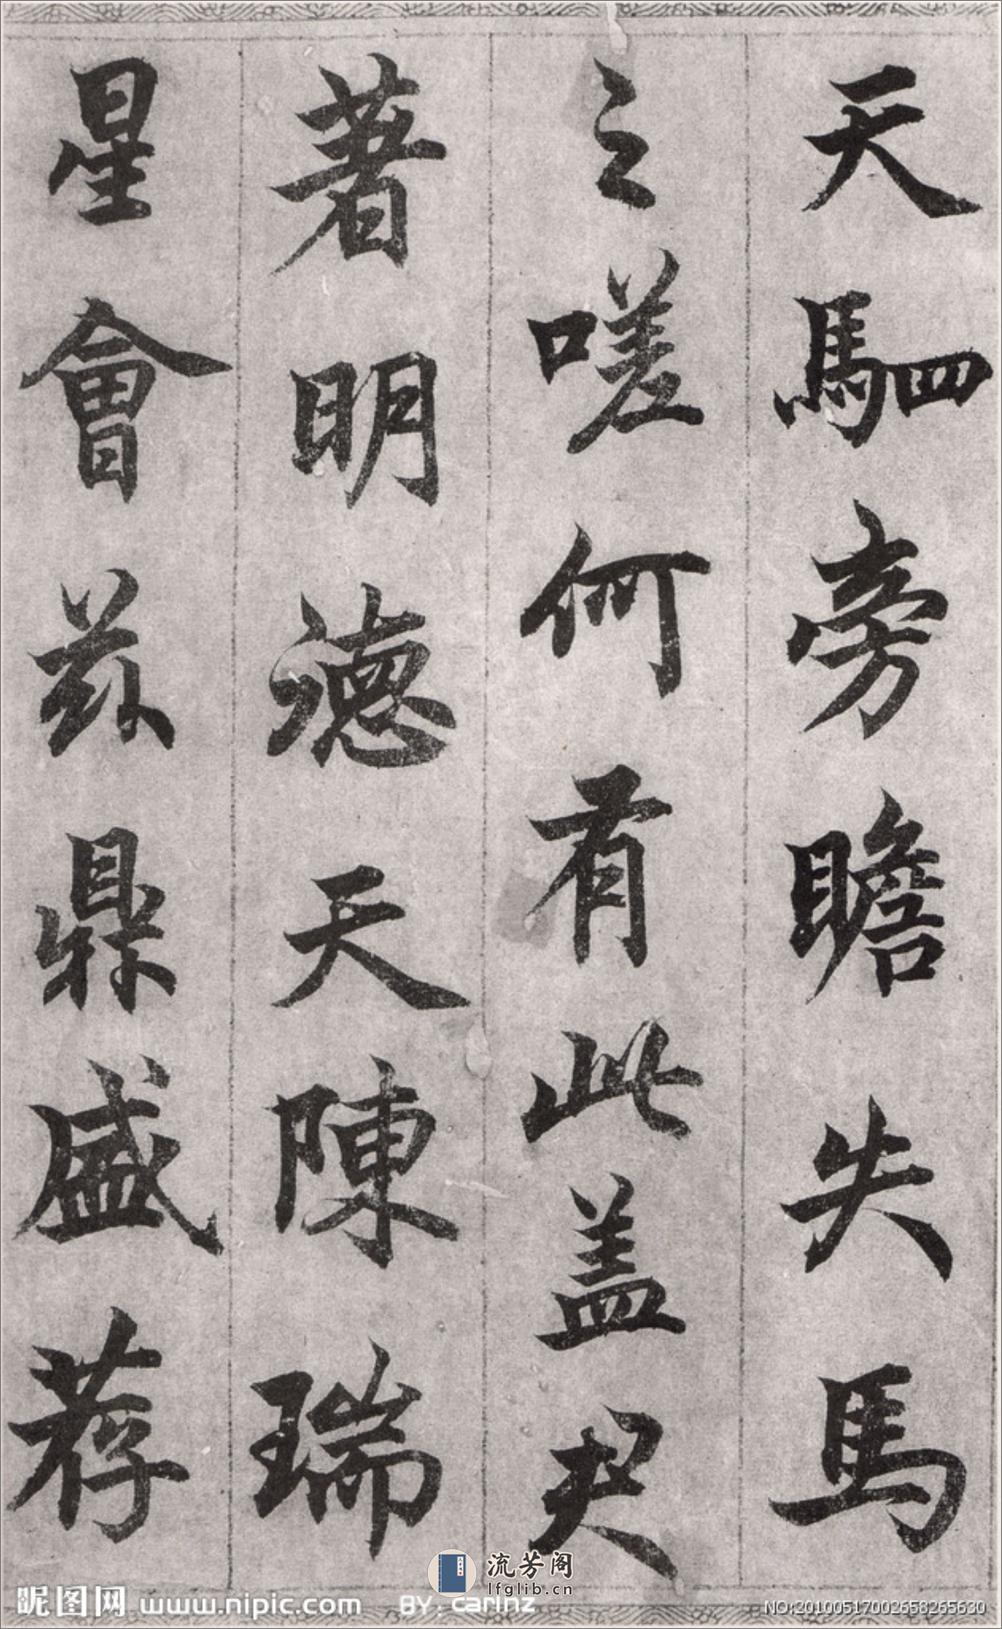 天駟旁瞻失馬
之嗟何有此盖
著明德天陳瑞
星會兹鼎盛荐
流芳阁
lfglib.cn
昵图网 www.nipic.com BY: carinz
NO:20100517002658265630